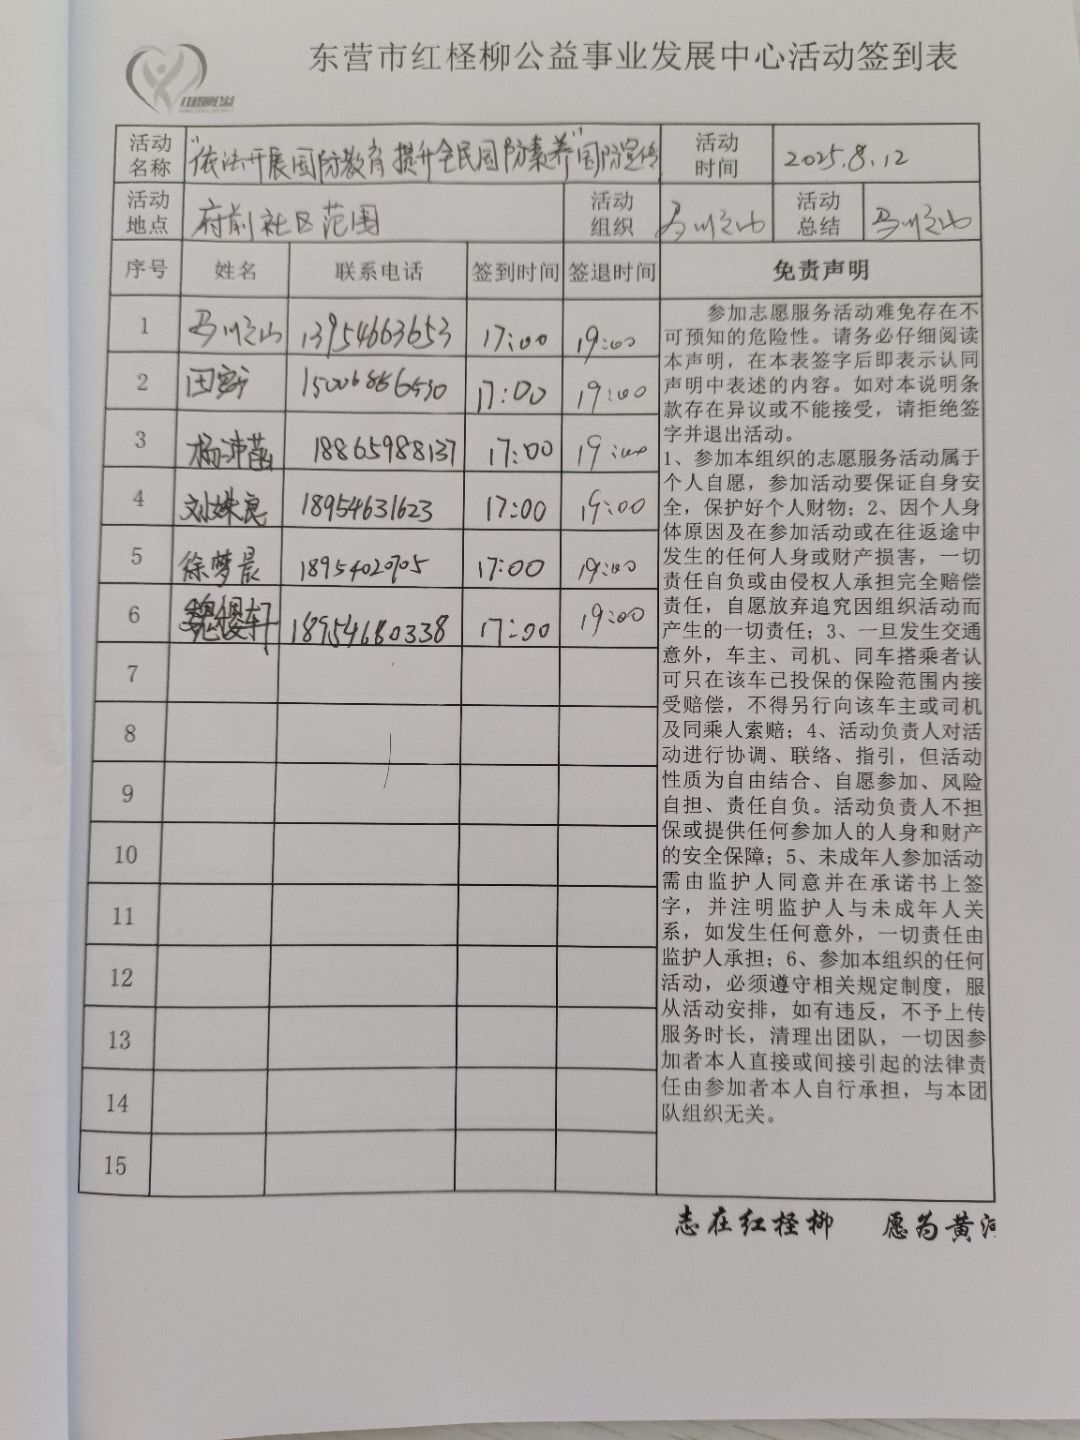 东营市红柽柳公益事业发展中心活动签到表
活动名称 "依法开展国防教育 提升全民国防素养"国防宣传 活动时间 2025.8.12
活动地点 府前社区范围 活动组织 活动总结
序号 姓名 联系电话 签到时间 签退时间 免责声明
1 13954663653 17:00 19:00
2 15006866530 17:00 19:00
3 杨沛菡 18865988137 17:00 19:00
4 刘姝良 18954631623 17:00 19:00
5 徐梦晨 17:00 19:00
6 魏缨轩 18954680338 17:00 19:00
7
8
9
10
11
12
13
14
15
参加志愿服务活动难免存在不
可预知的危险性。请务必仔细阅读
本声明，在本表签字后即表示认同
声明中表述的内容。如对本说明条
款存在异议或不能接受，请拒绝签
字并退出活动。
1、参加本组织的志愿服务活动属于
个人自愿，参加活动要保证自身安
全，保护好个人财物；2、因个人身
体原因及在参加活动或在往返途中
发生的任何人身或财产损害，一切
责任自负或由侵权人承担完全赔偿
责任，自愿放弃追究因组织活动而
产生的一切责任；3、一旦发生交通
意外，车主、司机、同车搭乘者认
可只在该车已投保的保险范围内接
受赔偿，不得另行向该车主或司机
及同乘人索赔；4、活动负责人对活
动进行协调、联络、指引，但活动
性质为自由结合、自愿参加、风险
自担、责任自负。活动负责人不担
保或提供任何参加人的人身和财产
的安全保障；5、未成年人参加活动
需由监护人同意并在承诺书上签
字，并注明监护人与未成年人关
系，如发生任何意外，一切责任由
监护人承担；6、参加本组织的任何
活动，必须遵守相关规定制度，服
从活动安排，如有违反，不予上传
服务时长，清理出团队，一切因参
加者本人直接或间接引起的法律责
任由参加者本人自行承担，与本团
队组织无关。
志在红柽柳 愿为黄河